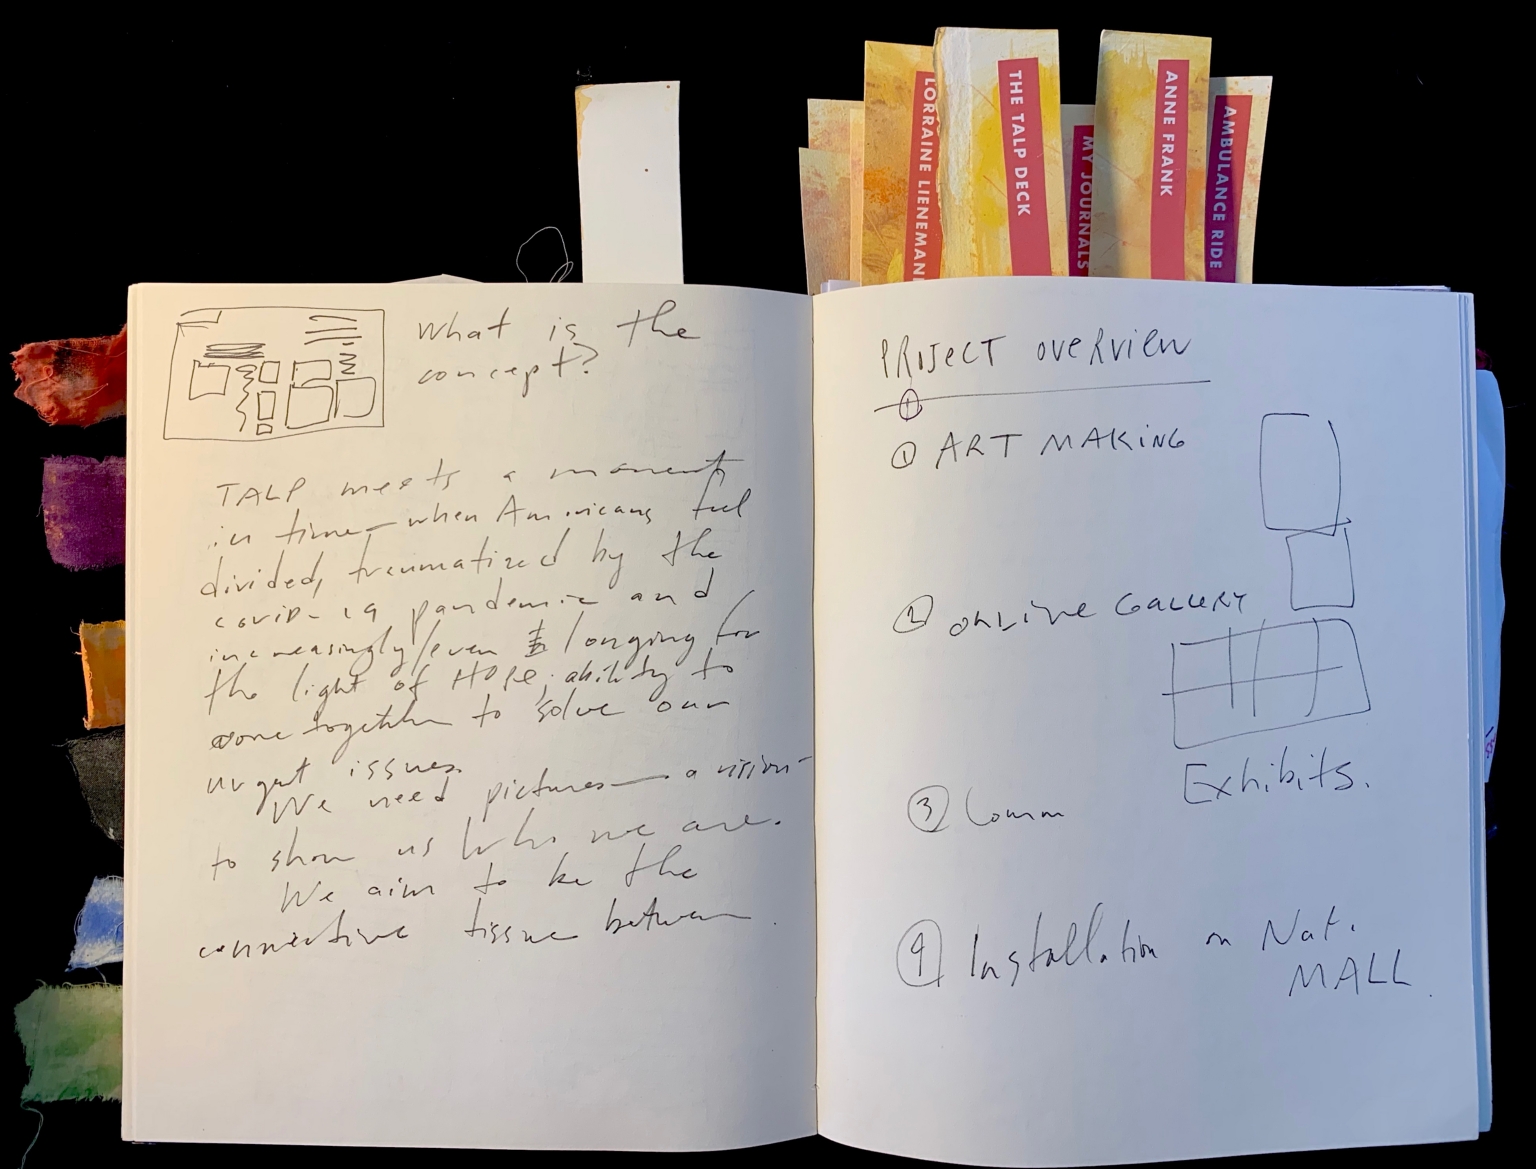 LORRAINE LIENEMAN
THE TALP DECK
MY JOURNALS
ANNE FRANK
AMBULANCE RIDE
What is the
concept?
TALP meets a moment
in time—when Americans feel
divided, traumatized by the
covid-19 pandemic and
increasingly/even longing for
the light of HOPE, ability to
come together to solve our
urgent issues.
We need pictures—a vision—
to show us who we are.
We aim to be the
connective tissue between
PROJECT OVERVIEW
1
1 ART MAKING
2 ONLINE GALLERY
Exhibits.
3 Comm
4 Installation on Nat.
MALL